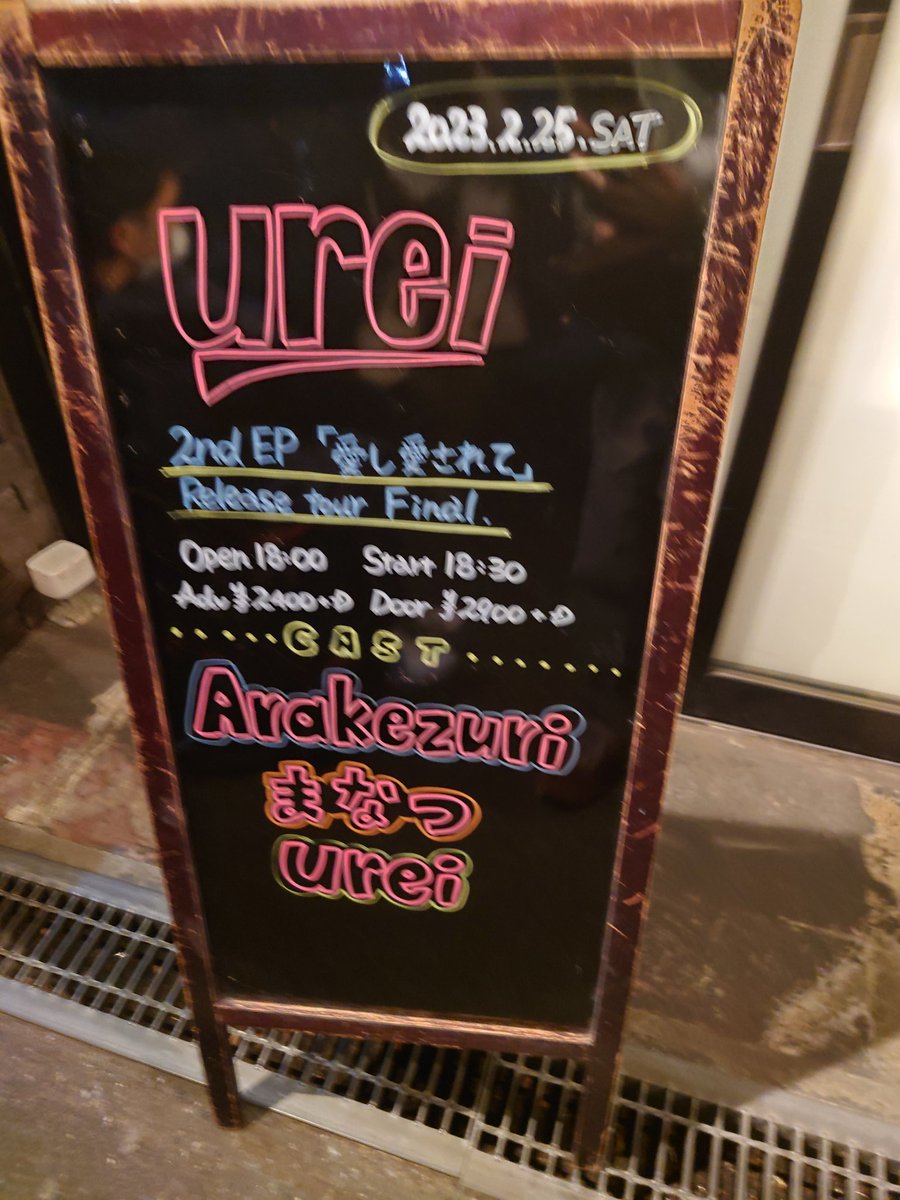 2023.2.25.SAT
urei
2nd EP「愛し愛されて」
Release tour Final.
Open 18:00 Start 18:30
Adv ¥2400+D Door ¥2900+D
CAST
Arakezuri
まなつ
urei